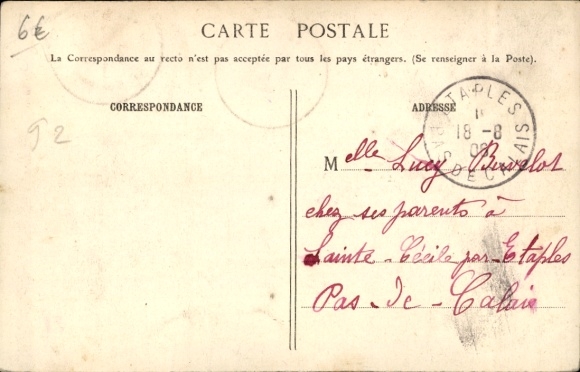 6€
CARTE POSTALE
La Correspondance au recto n'est pas acceptée par tous les pays étrangers. (Se renseigner à la Poste).
CORRESPONDANCE
ADRESSE
92
ETAPLES
18 -8
PAS DE CALAIS
Melle Lucy Buvelot
chez ses parents à
Sainte-Cécile par-Etaples
Pas-de-Calais